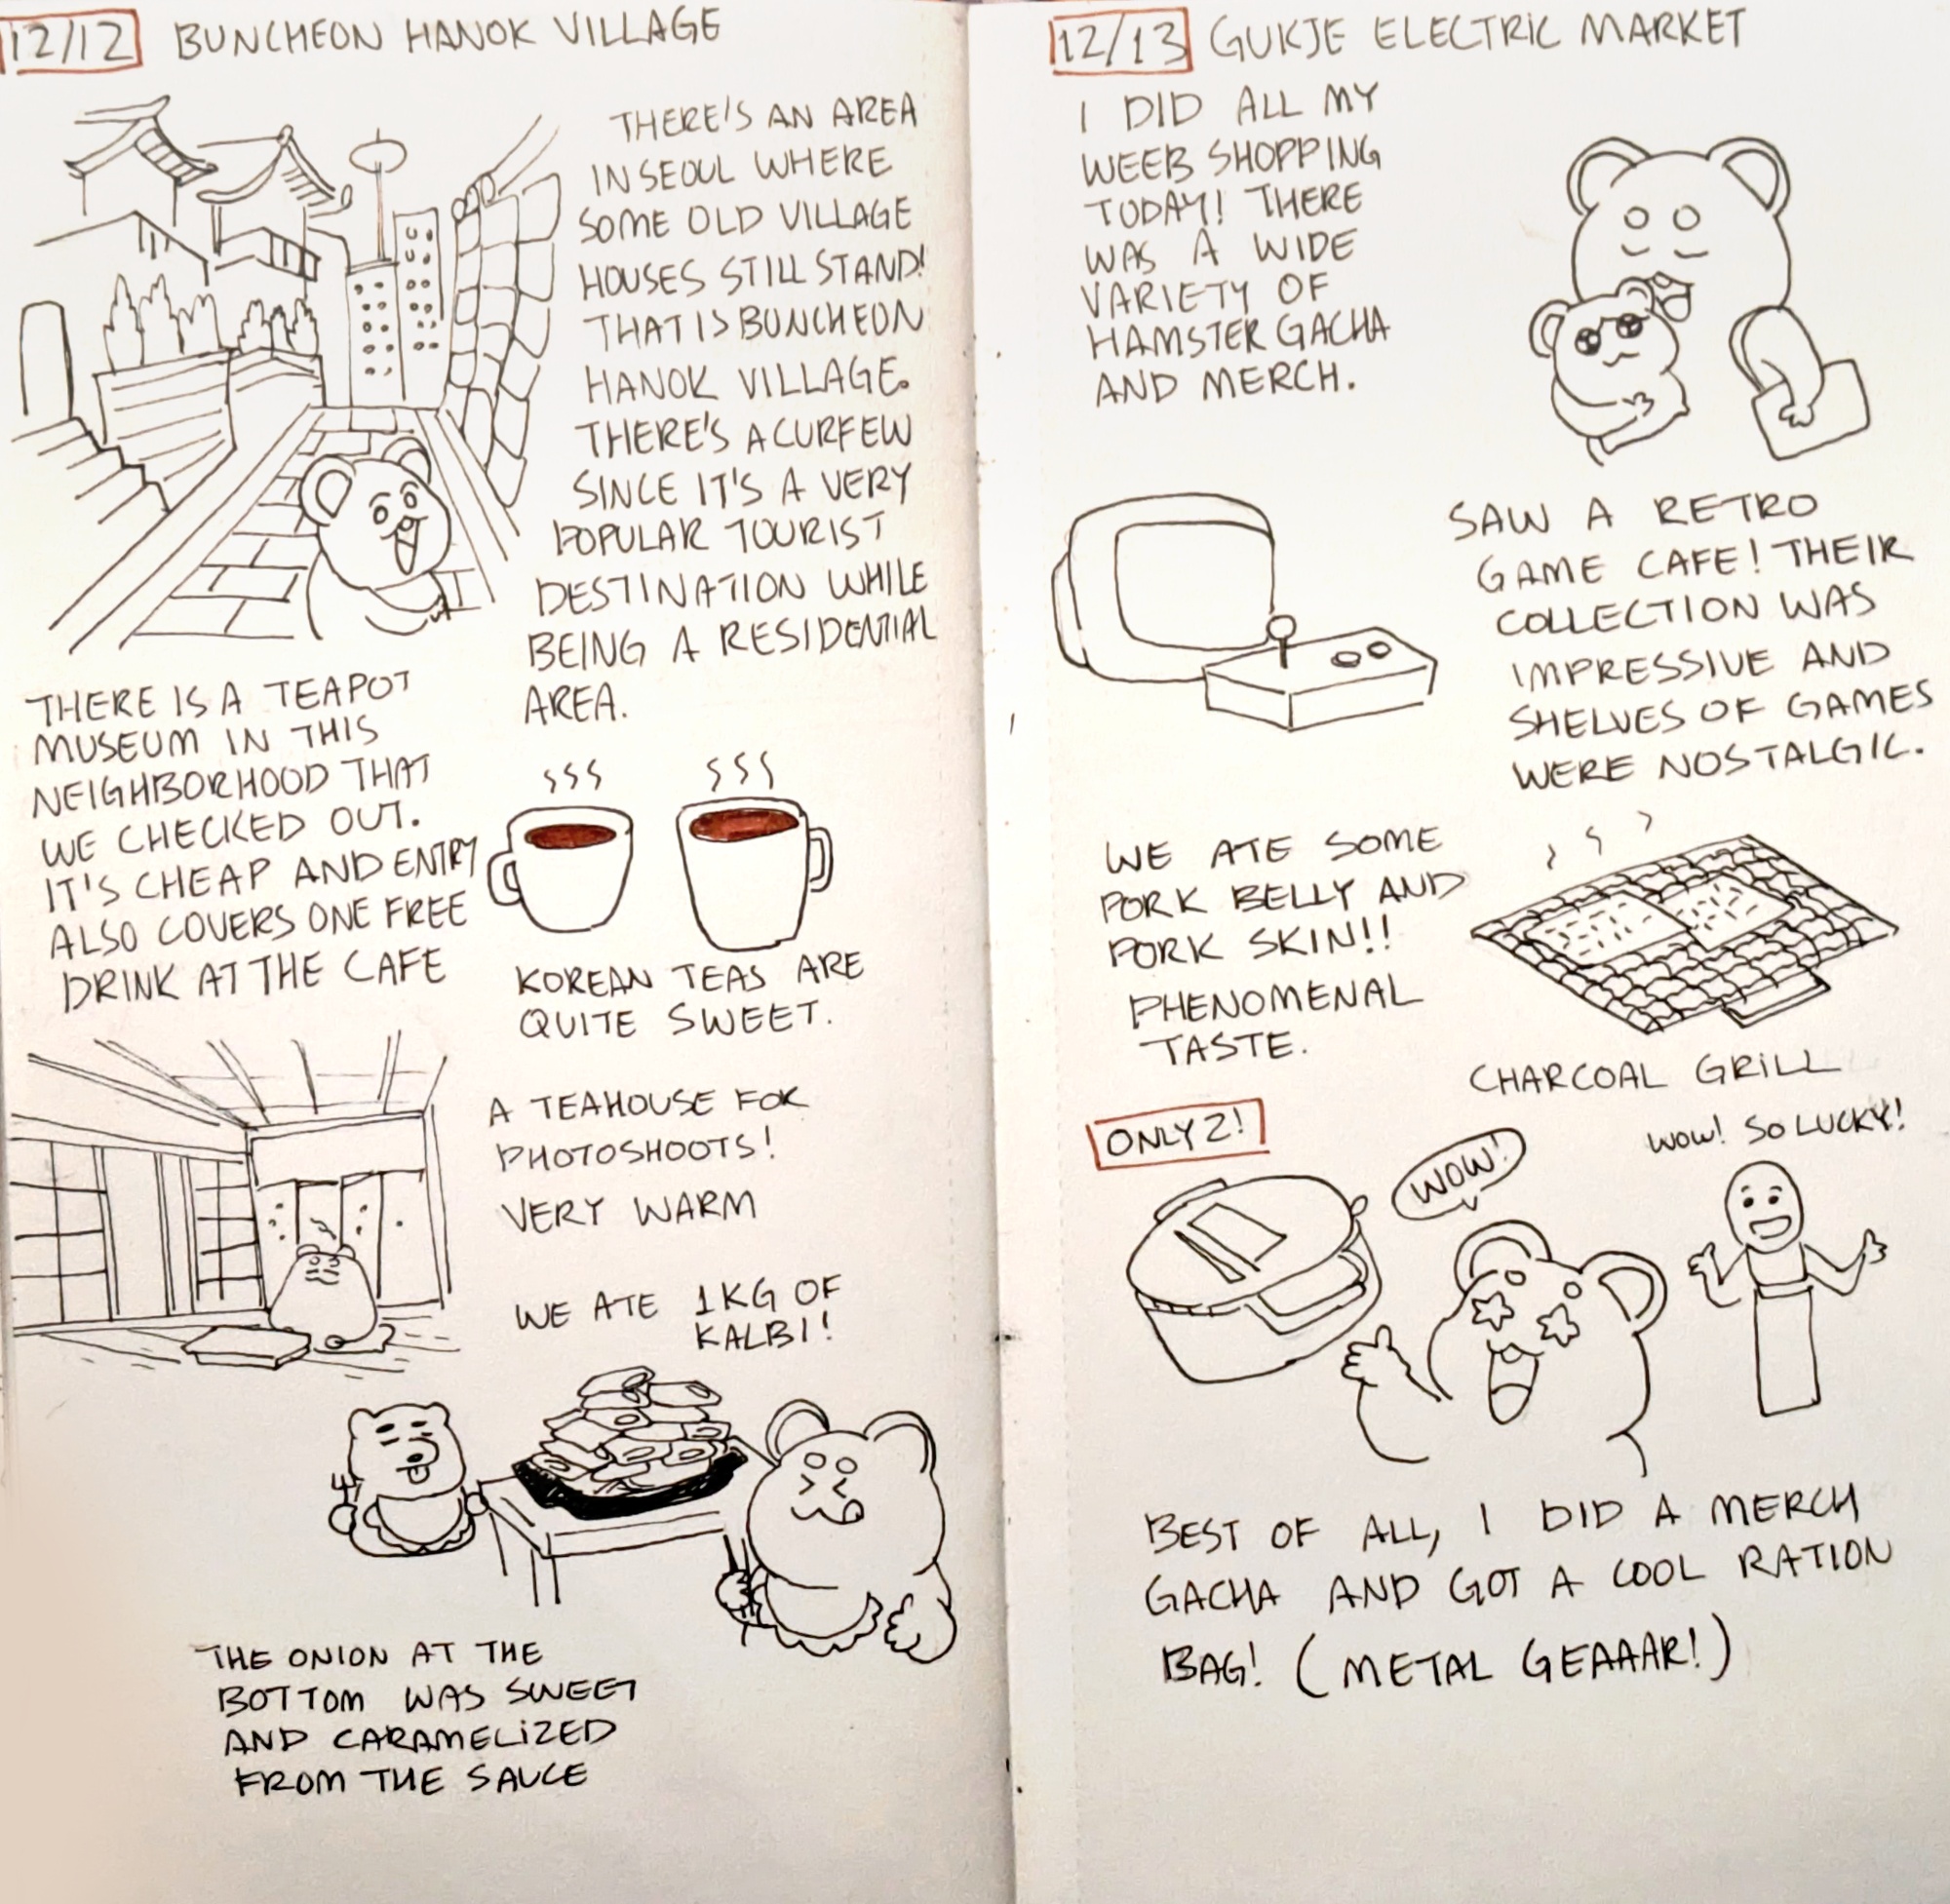 12/12 BUNCHEON HANOK VILLAGE
THERE'S AN AREA
IN SEOUL WHERE
SOME OLD VILLAGE
HOUSES STILL STAND!
THAT IS BUNCHEON
HANOK VILLAGE.
THERE'S A CURFEW
SINCE IT'S A VERY
POPULAR TOURIST
DESTINATION WHILE
BEING A RESIDENTIAL
AREA.
THERE IS A TEAPOT
MUSEUM IN THIS
NEIGHBORHOOD THAT
WE CHECKED OUT.
IT'S CHEAP AND ENTRY
ALSO COVERS ONE FREE
DRINK AT THE CAFE
KOREAN TEAS ARE
QUITE SWEET.
A TEAHOUSE FOR
PHOTOSHOOTS!
VERY WARM
WE ATE 1KG OF
KALBI!
THE ONION AT THE
BOTTOM WAS SWEET
AND CARAMELIZED
FROM THE SAUCE
12/13 GUKJE ELECTRIC MARKET
I DID ALL MY
WEEB SHOPPING
TODAY! THERE
WAS A WIDE
VARIETY OF
HAMSTER GACHA
AND MERCH.
SAW A RETRO
GAME CAFE! THEIR
COLLECTION WAS
IMPRESSIVE AND
SHELVES OF GAMES
WERE NOSTALGIC.
WE ATE SOME
PORK BELLY AND
PORK SKIN!!
PHENOMENAL
TASTE.
CHARCOAL GRILL
ONLY 2!
WOW!
WOW! SO LUCKY!
BEST OF ALL, I DID A MERCH
GACHA AND GOT A COOL RATION
BAG! (METAL GEAAAR!)